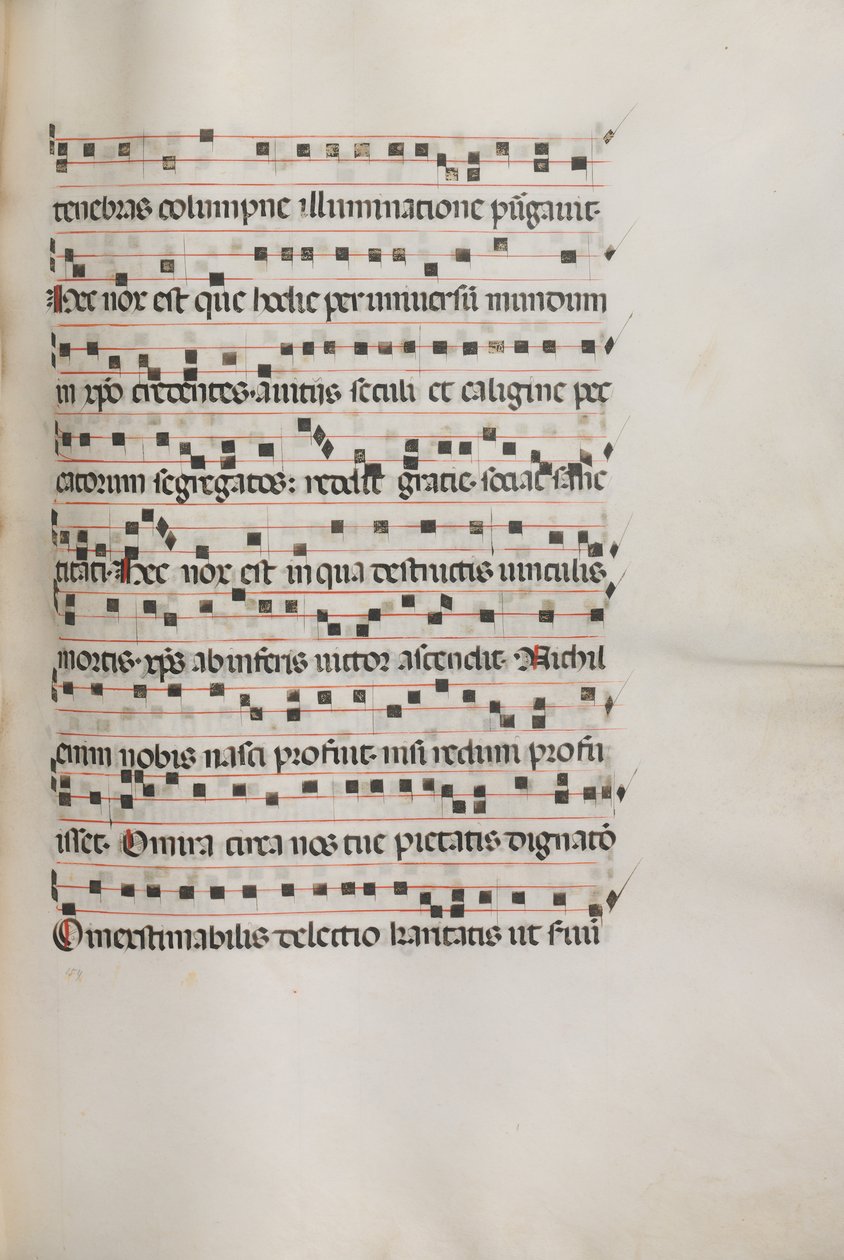 tenebras columpne illuminatione pūgauit·
Hec nox est que hodie per uniuersū mundum
in xp̄o credentes· a uitijs seculi et caligine pec
catorum segregatos: reddit gratie· sociat sanc
titati· Hec nox est in qua destructis uinculis
mortis· xp̄s ab inferis uictor ascendit· Nichil
enim nobis nasci profuit· nisi redimi profu
isset· O mira circa nos tue pietatis dignatō
O inextimabilis delectio karitatis ut seruū